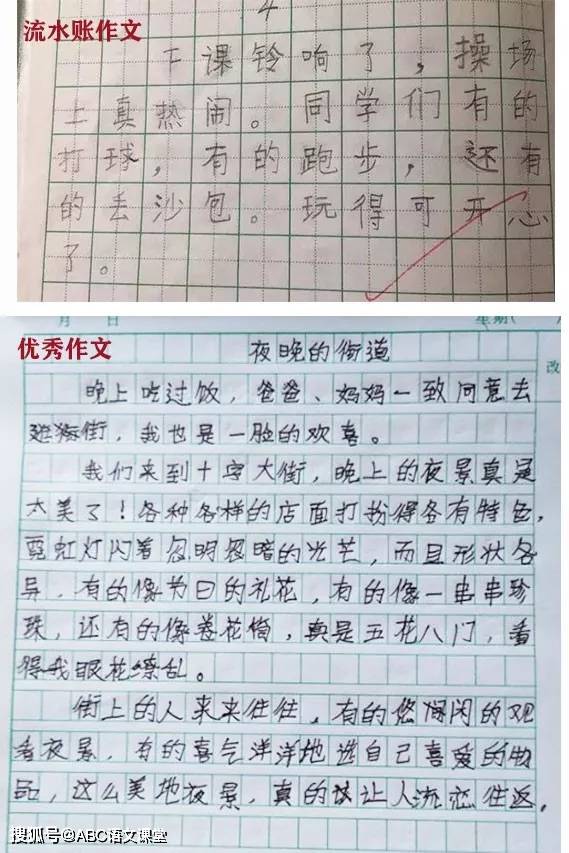 流水账作文
下课铃响了，操场
上真热闹。同学们有的
打球，有的跑步，还有
的丢沙包。玩得可开心
了。
月 日 星期(
优秀作文
夜晚的街道
改
晚上吃过饭，爸爸、妈妈一致同意去
街，我也是一脸的欢喜。
我们来到十字大街，晚上的夜景真是
太美了！各种各样的店面打扮得各有特色，
霓虹灯闪着忽明忽暗的光芒，而且形状各
异，有的像节日的礼花，有的像一串串珍
珠，还有的像，真是五花八门，看
得我眼花缭乱。
街上的人来来往往，有的悠闲闲的观
看夜景，有的喜气洋洋地选自己喜爱的物
品，这么美地夜景，真的让人流恋往返。
搜狐号@ABC语文课堂